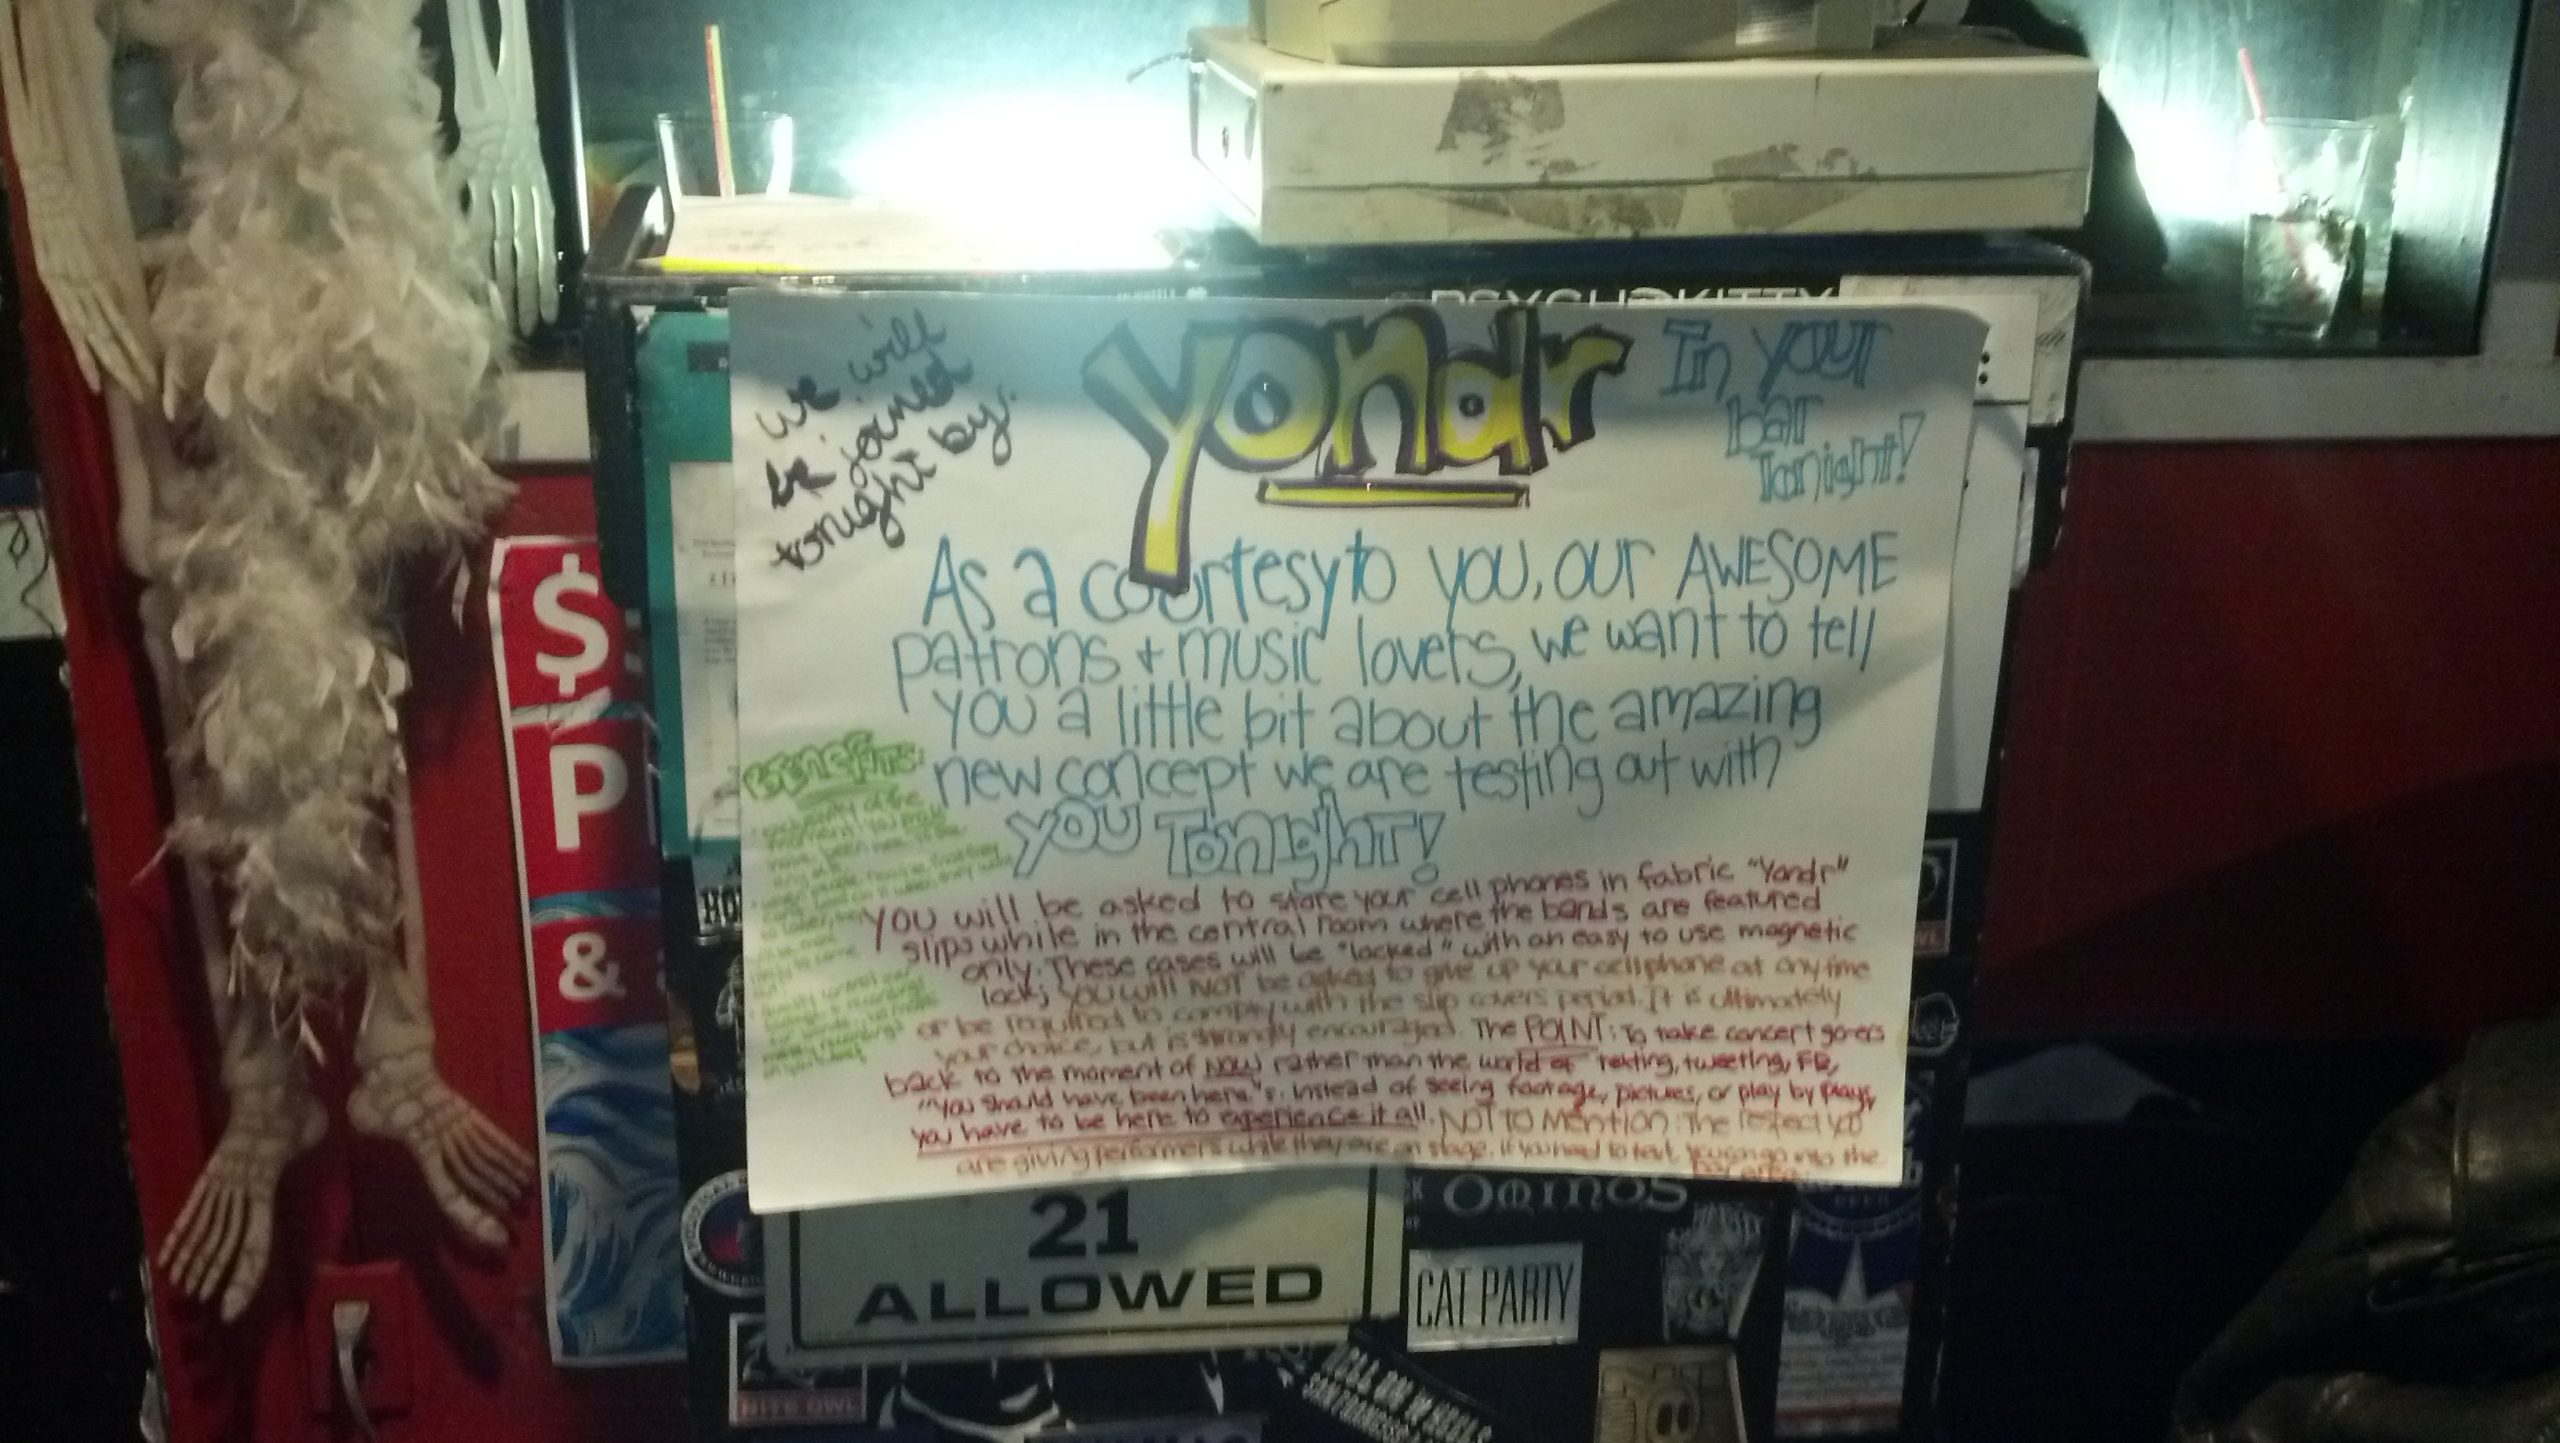 PSYCHOKITTY
we will
be joined
tonight by:
Yondr
In your
bar
Tonight!
As a courtesy to you, our AWESOME
patrons + music lovers, we want to tell
you a little bit about the amazing
new concept we are testing out with
you Tonight!
Benefits:
You will be asked to store your cell phones in fabric "Yondr"
slips while in the central room where the bands are featured
only. These cases will be "locked" with an easy to use magnetic
lock; you will NOT be asked to give up your cell phone at any time
or be required to comply with the slip covers period. It is ultimately
your choice, but is strongly encouraged. The POINT: To take concert go-ers
back to the moment of NOW rather than the world of texting, tweeting, FB,
"you should have been here"s. Instead of seeing footage, pictures, or play by plays,
you have to be here to experience it all. NOT TO Mention: The respect you
are giving performers while they are on stage. If you need to text, you can go into the
bar area.
$
P
&
HO
21
ALLOWED
CAT PARTY
NITE OWL
HELL ON WHEELS
SAN FRANCISCO